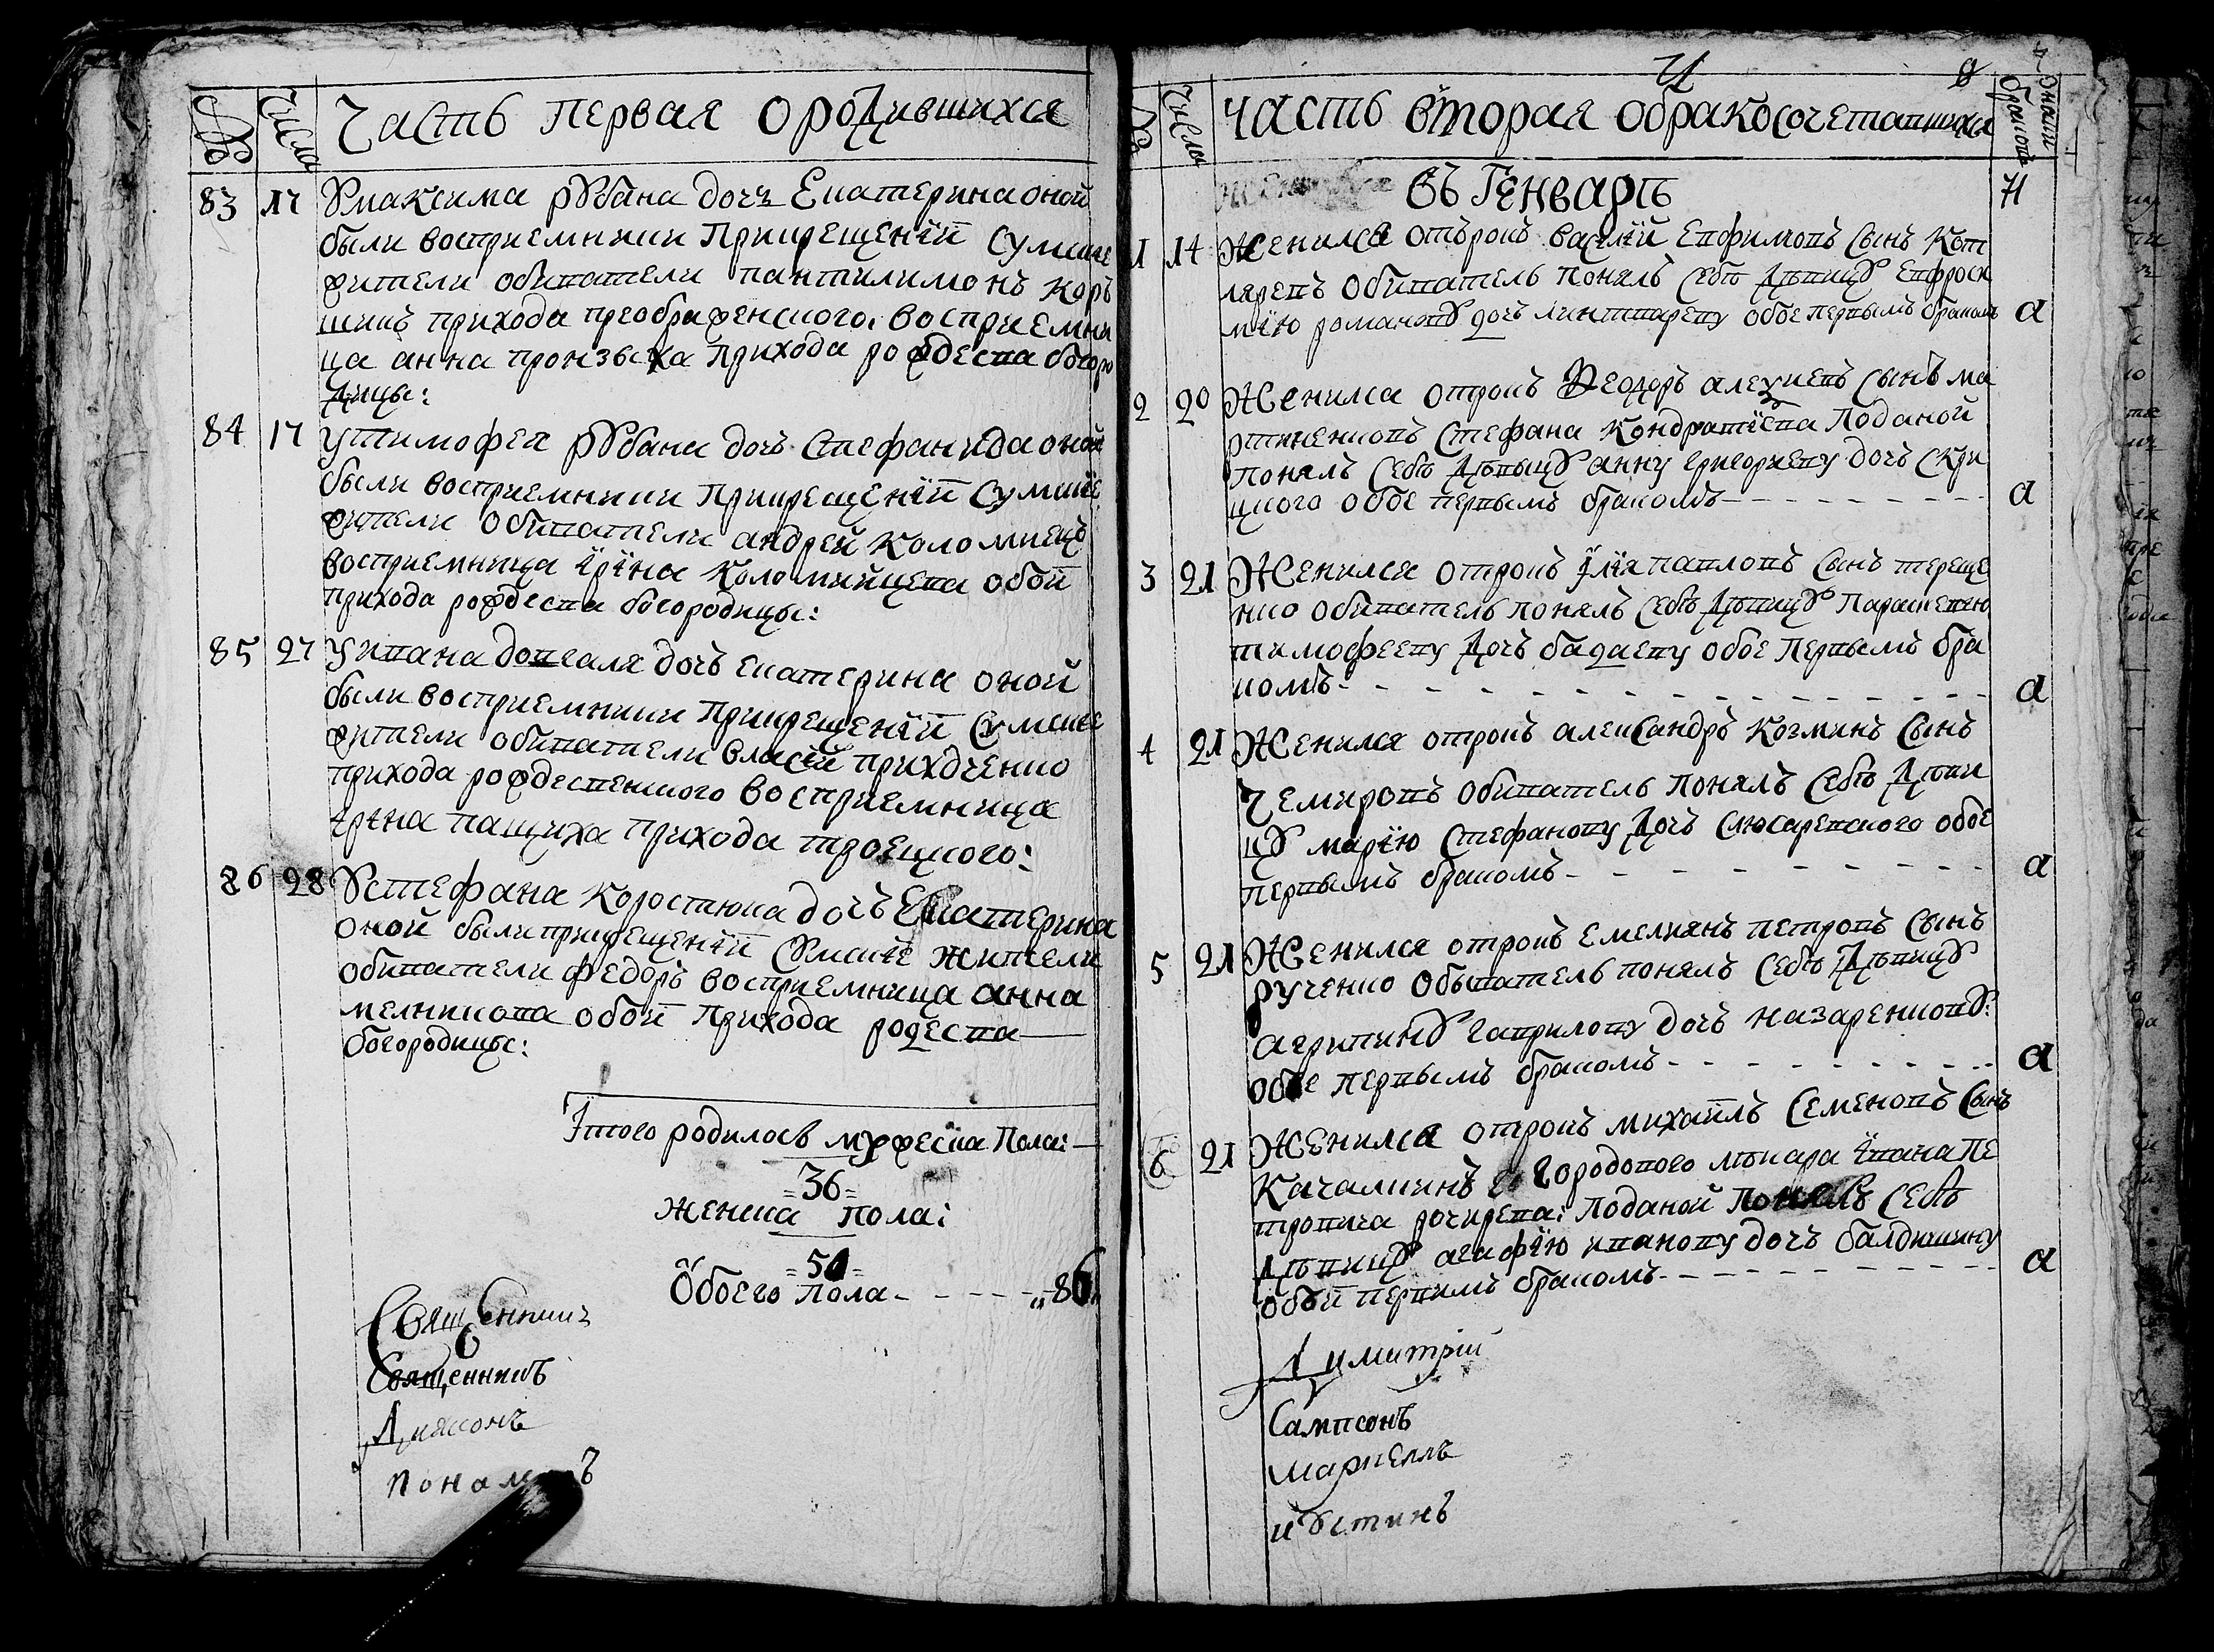 № Числа Часть первая ородившихся
83 17 Умаксима рубана дочь Екатерина оной
были восприемники Прикрещенїй Сумскїе
жители обиватели пантилимонъ Кор
шикъ прихода преображенского. восприемни
ца анна прихода рождества богоро
дицы:
84 17 утимофея рубана дочь Стефанида оной
были восприемники Прикрещенїй Сумскїе
жители обиватели андрей Коломиецъ
восприемница їрїна Коломийцева обой
прихода рождества богородицы:
85 27 Уивана довгаля дочь екатерина оной
были восприемники Прикрещенїй Сумскїе
жители обиватели власїй приходченко
прихода рождественского восприемница
їрїна пащиха прихода троецкого:
86 28 Устефана Коростюка дочь Екатерина
оной были прикрещенїй Сумскїе жители
обиватели федоръ восприемница анна
мелникова обой Прихода рождества
богородицы:
Їтого родилось мужеска Пола:
=36=
женска пола:
=50=
Обоего Пола - - - - - „86„
Священникъ
Священникъ
Диаконъ
понамаръ
№ Число часть вторая обракосочетавшихся
въ Генваръ
1 14 Женился отрокъ василїй Евфимовъ Сынъ Кот
ляревъ Обиватель понялъ себѣ дѣвицу Евфроси
мїю романову дочь обое первымъ бракомъ а
2 20 Женился отрокъ Феодоръ алексѣевъ Сынъ ма
ртиненковъ Стефана Кондратїева Поданой
понялъ Себѣ Дѣвыцу анну григориеву дочь Скри
цкого обое первымъ бракомъ - - - - - - - - - а
3 21 Женился отрокъ Їлїя павловъ Сынъ тереще
нко обиватель понялъ Себѣ Дѣвицу Параскевїю
тимофееву Дочь бадаеву обое Первымъ бра
комъ - - - - - - - - - - - - - - а
4 21 Женился отрокъ александръ Козминъ Сынъ
Чемировъ обиватель понялъ Себѣ Дѣви
цу марїю Стефанову Дочь Слюсаревского обое
первымъ бракомъ - - - - - - - - - - а
5 21 Женился отрокъ емелиянъ петровъ Сынъ
рученко Обыватель понялъ Себѣ Дѣвицу
агрипину гаврилову дочь назаренкову:
Обое первымъ бракомъ - - - - - - - - - - а
6 21 Женился отрокъ михаилъ Семеновъ Сынъ
Качалкинъ городового лѣкара їванапе
тровича Поданой Понялъ Себѣ
Дѣвицу агафїю иванову дочь балдикину
обой первимъ бракомъ - - - - - - - - - - а
Димитрїй
Сампсонъ
маркеллъ
иустинъ